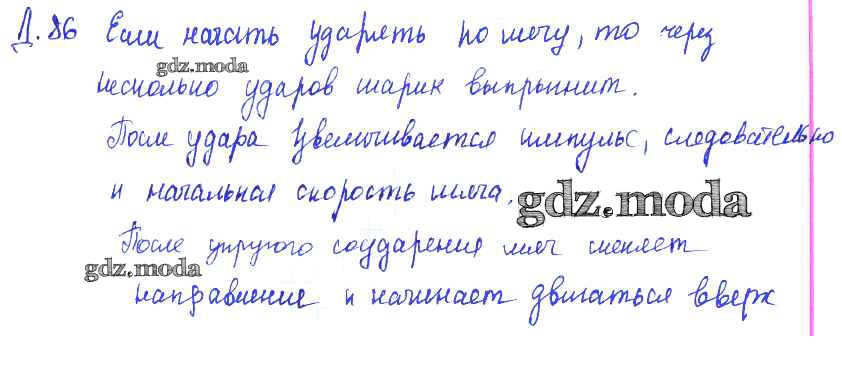 Д.86 Если начать ударять по мячу, то через
gdz.moda
несколько ударов шарик выпрыгнит.
После удара увеличивается импульс, следовательно
и начальная скорость мяча.
gdz.moda
После упругого соударения мяч меняет
gdz.moda
направление и начинает двигаться вверх